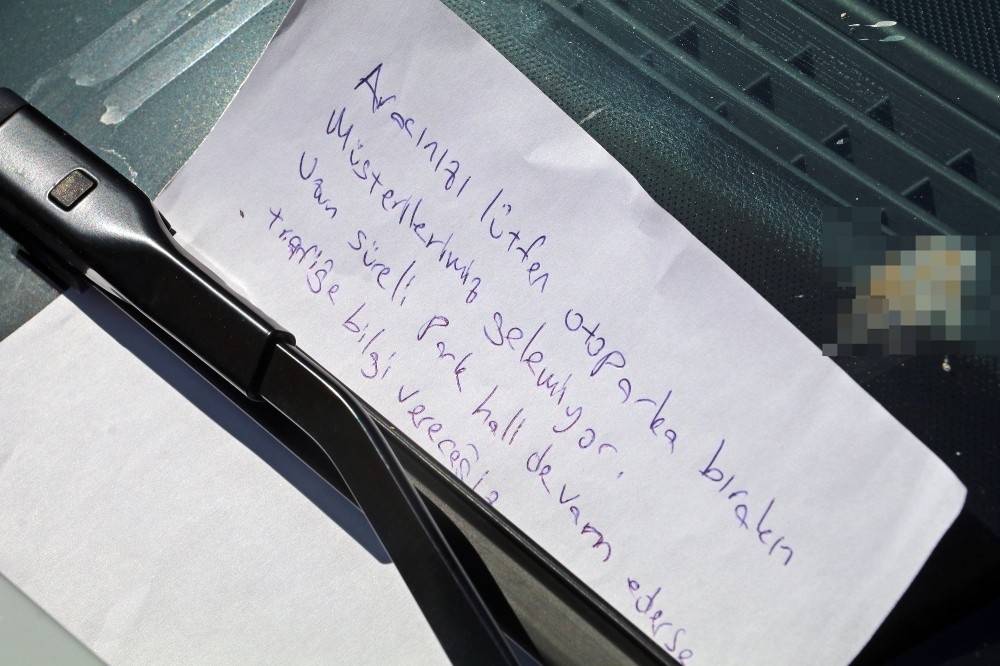 Aracınızı lütfen otoparka bırakın
Müşterilerimiz gelemiyor.
Uzun süreli park hali devam ederse
trafiğe bilgi vereceğiz